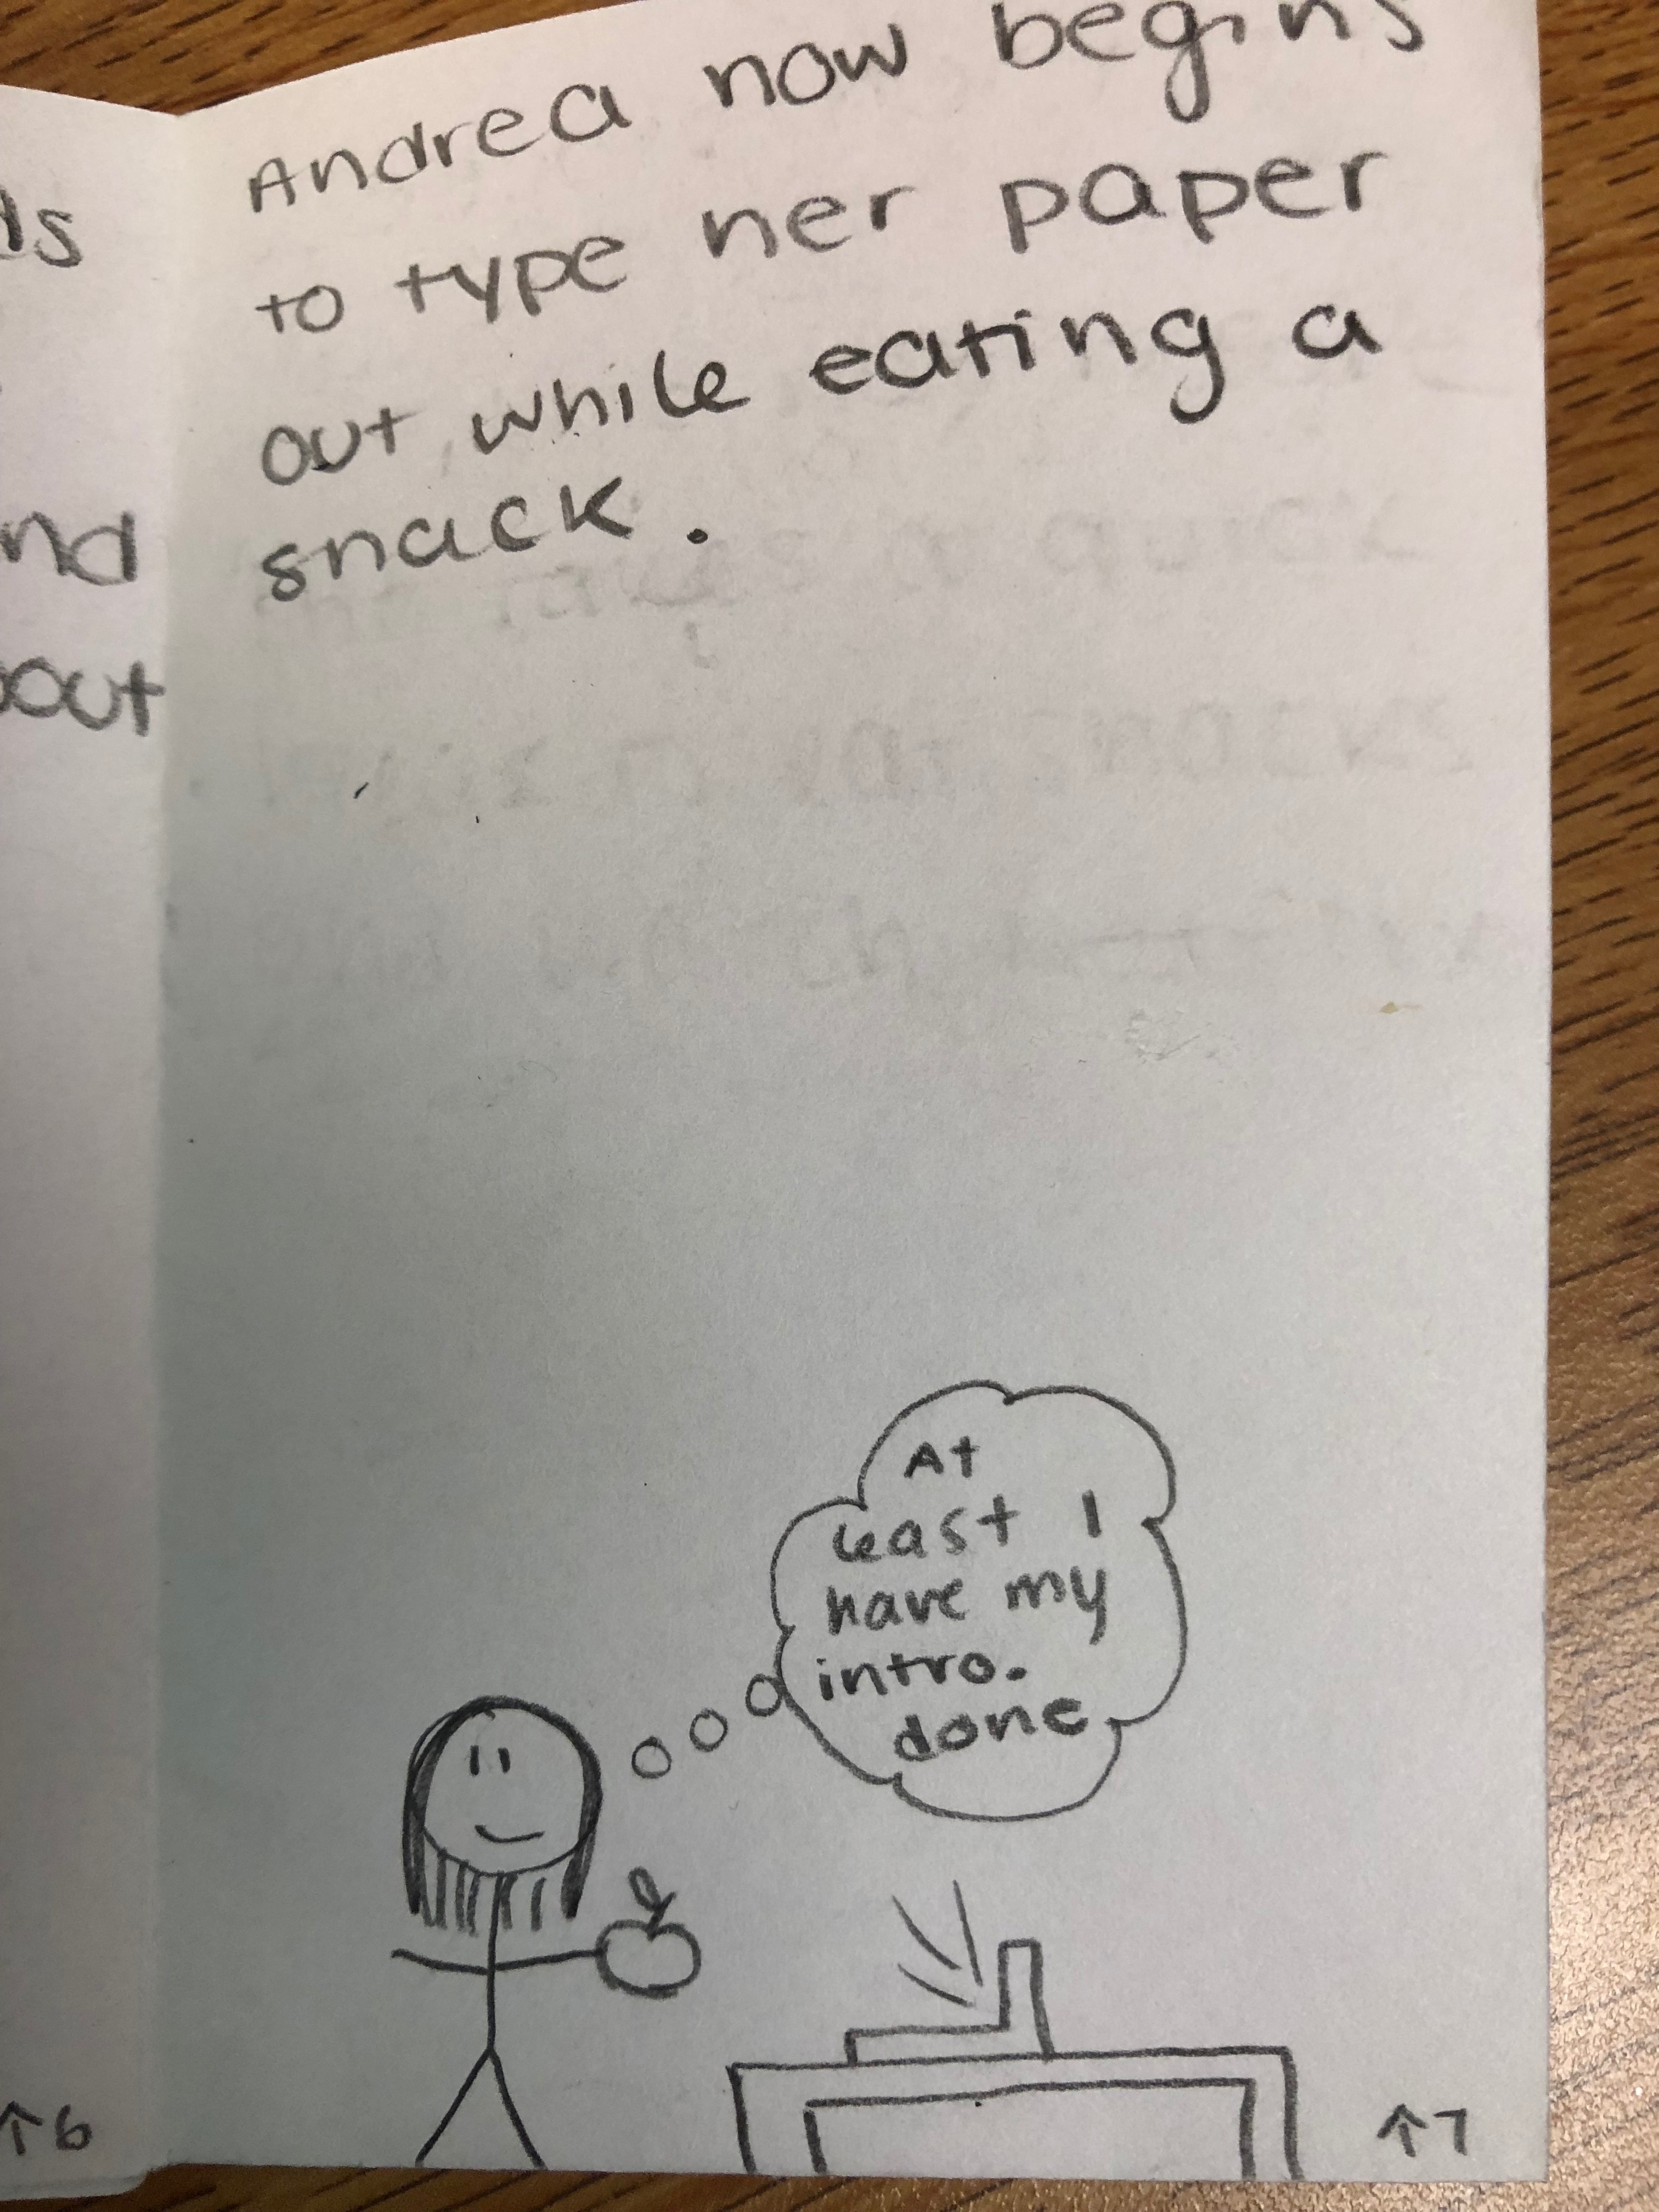 nd
Andrea now begins
to type her paper
out while eating a
snack.
At
least I
have my
intro.
done
↑6
↑7